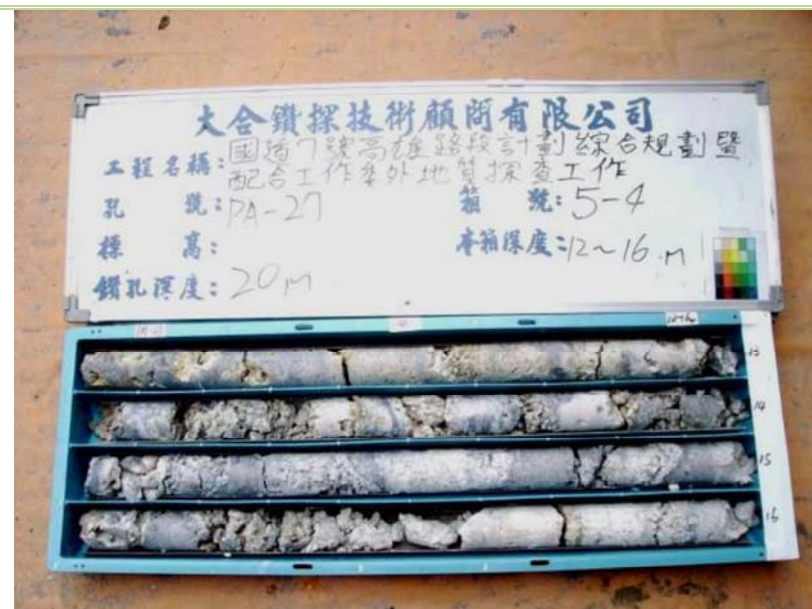 大合鑽探技術顧問有限公司
工程名稱：國道7號高雄路段計劃綜合規劃暨
配合工作委外地質探查工作
孔 號：PA-27 箱 號：5-4
標 高： 本箱深度：12~16.m
鑽孔深度：20m
13
14
15
16